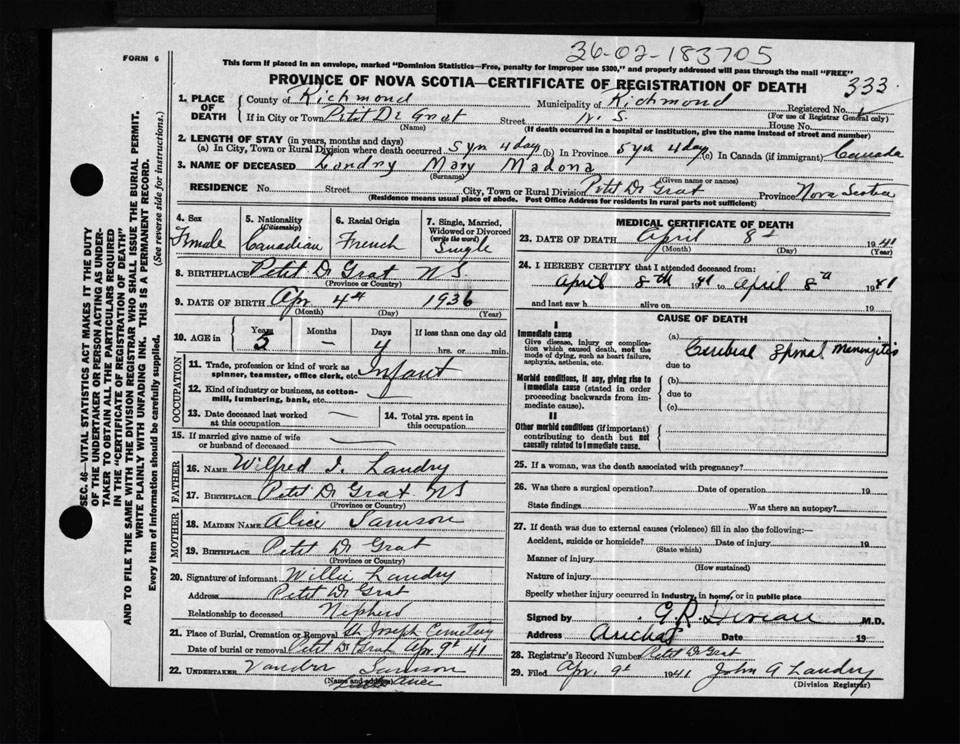 36-02-183705
FORM 6
This form if placed in an envelope, marked "Dominion Statistics—Free, penalty for improper use $300," and properly addressed will pass through the mail "FREE"
PROVINCE OF NOVA SCOTIA—CERTIFICATE OF REGISTRATION OF DEATH 333
1. PLACE OF DEATH
County of Richmond Municipality of Richmond Registered No.
(For use of Registrar General only)
If in City or Town Petit De Grat Street N.S. House No.
(Name) (If death occurred in a hospital or institution, give the name instead of street and number)
2. LENGTH OF STAY (in years, months and days)
(a) In City, Town or Rural Division where death occurred 5 yrs 4 days (b) In Province 5 yrs 4 days (c) In Canada (if immigrant) Canada
3. NAME OF DECEASED Landry Mary Madona
(Surname) (Given name or names)
RESIDENCE No. Street City, Town or Rural Division Petit De Grat Province Nova Scotia
(Residence means usual place of abode. Post Office Address for residents in rural parts not sufficient)
4. Sex Female
5. Nationality (Citizenship) Canadian
6. Racial Origin French
7. Single, Married, Widowed or Divorced (write the word) Single
8. BIRTHPLACE Petit De Grat N.S.
(Province or Country)
9. DATE OF BIRTH Apr 4th 1936
(Month) (Day) (Year)
10. AGE in Years 5 Months — Days 4 If less than one day old hrs. or min.
OCCUPATION
11. Trade, profession or kind of work as spinner, teamster, office clerk, etc. Infant
12. Kind of industry or business, as cotton-mill, lumbering, bank, etc. —
13. Date deceased last worked at this occupation —
14. Total yrs. spent in this occupation
15. If married give name of wife or husband of deceased —
FATHER
16. NAME Wilfred J. Landry
17. BIRTHPLACE Petit De Grat NS
(Province or Country)
MOTHER
18. MAIDEN NAME Alice Samson
19. BIRTHPLACE Petit De Grat
(Province or Country)
20. Signature of informant Willie Landry
Address Petit De Grat
Relationship to deceased Nephew
21. Place of Burial, Cremation or Removal St Joseph Cemetery
Date of burial or removal Petit De Grat Apr. 9th 41
22. UNDERTAKER Samson
(Name and address)
MEDICAL CERTIFICATE OF DEATH
23. DATE OF DEATH April 8th 1941
(Month) (Day) (Year)
24. I HEREBY CERTIFY that I attended deceased from:
April 8th 1941 to April 8th 1941
and last saw h alive on 19
CAUSE OF DEATH
I
Immediate cause
Give disease, injury or complication which caused death, not the mode of dying, such as heart failure, asphyxia, asthenia, etc.
(a) Cerebral Spinal Meningitis
due to
Morbid conditions, if any, giving rise to immediate cause (stated in order proceeding backwards from immediate cause).
(b)
due to
(c)
II
Other morbid conditions (if important) contributing to death but not causally related to immediate cause.
25. If a woman, was the death associated with pregnancy?
26. Was there a surgical operation? Date of operation 19
State findings Was there an autopsy?
27. If death was due to external causes (violence) fill in also the following:—
Accident, suicide or homicide? Date of injury 19
(State which)
Manner of injury
(How sustained)
Nature of injury
Specify whether injury occurred in industry, in home, or in public place
Signed by M.D.
Address Arichat Date 19
28. Registrar's Record Number Petit De Grat
29. Filed Apr. 9th 1941 John A Landry
(Division Registrar)
SEC. 46—VITAL STATISTICS ACT MAKES IT THE DUTY
OF THE UNDERTAKER OR PERSON ACTING AS UNDER-
TAKER TO OBTAIN ALL THE PARTICULARS REQUIRED
IN THE "CERTIFICATE OF REGISTRATION OF DEATH"
AND TO FILE THE SAME WITH THE DIVISION REGISTRAR WHO SHALL ISSUE THE BURIAL PERMIT.
WRITE PLAINLY WITH UNFADING INK. THIS IS A PERMANENT RECORD.
Every item of information should be carefully supplied. (See reverse side for instructions.)